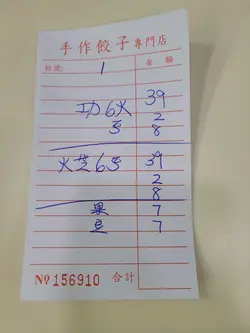 手作餃子專門店
枱號: 1 金額
功6火 39
2
8
火芝6 39
2
8
果 7
豆 7
№ 156910 合計